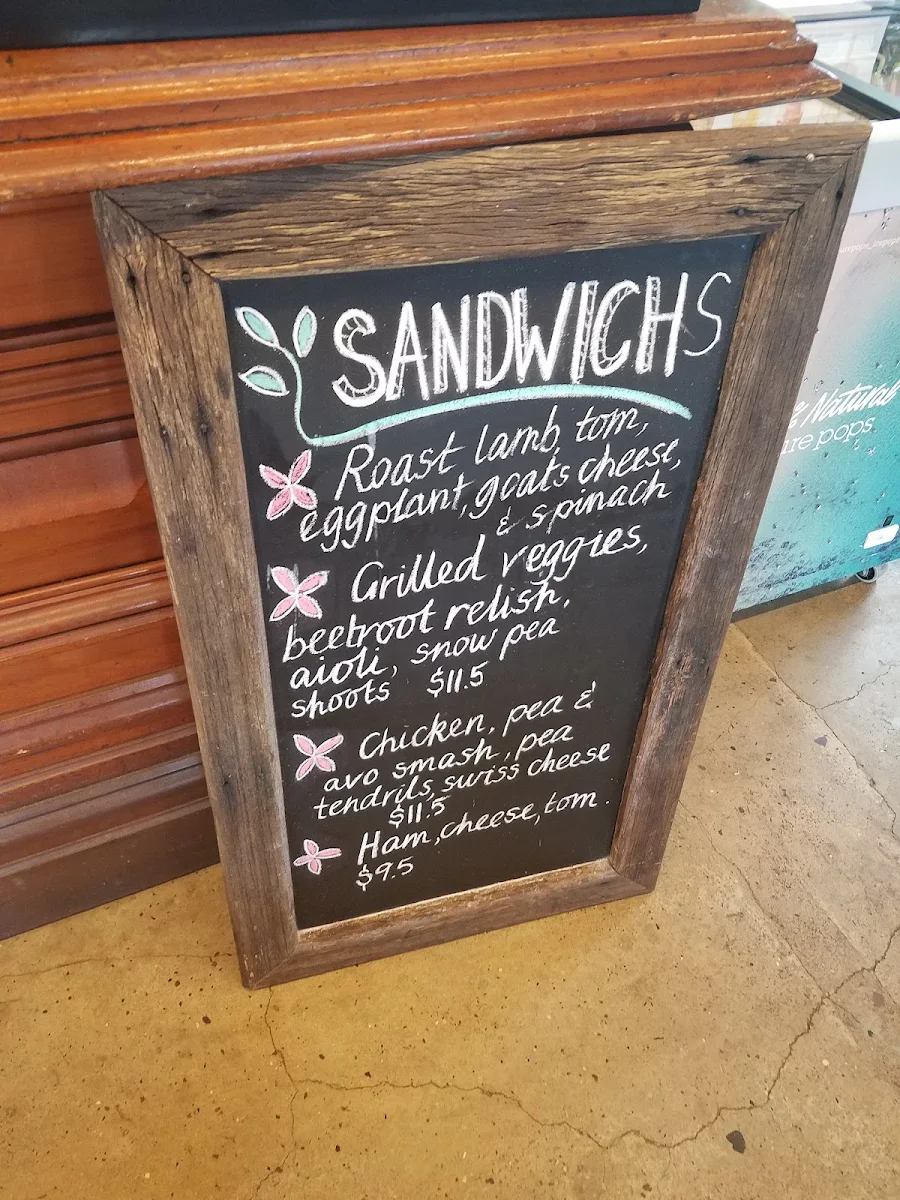 SANDWICHS
Roast lamb, tom,
eggplant, goats cheese,
& spinach
Grilled veggies,
beetroot relish,
aioli, snow pea
shoots $11.5
Chicken, pea &
avo smash, pea
tendrils, swiss cheese
$11.5
Ham, cheese, tom.
$9.5
Natural
pops